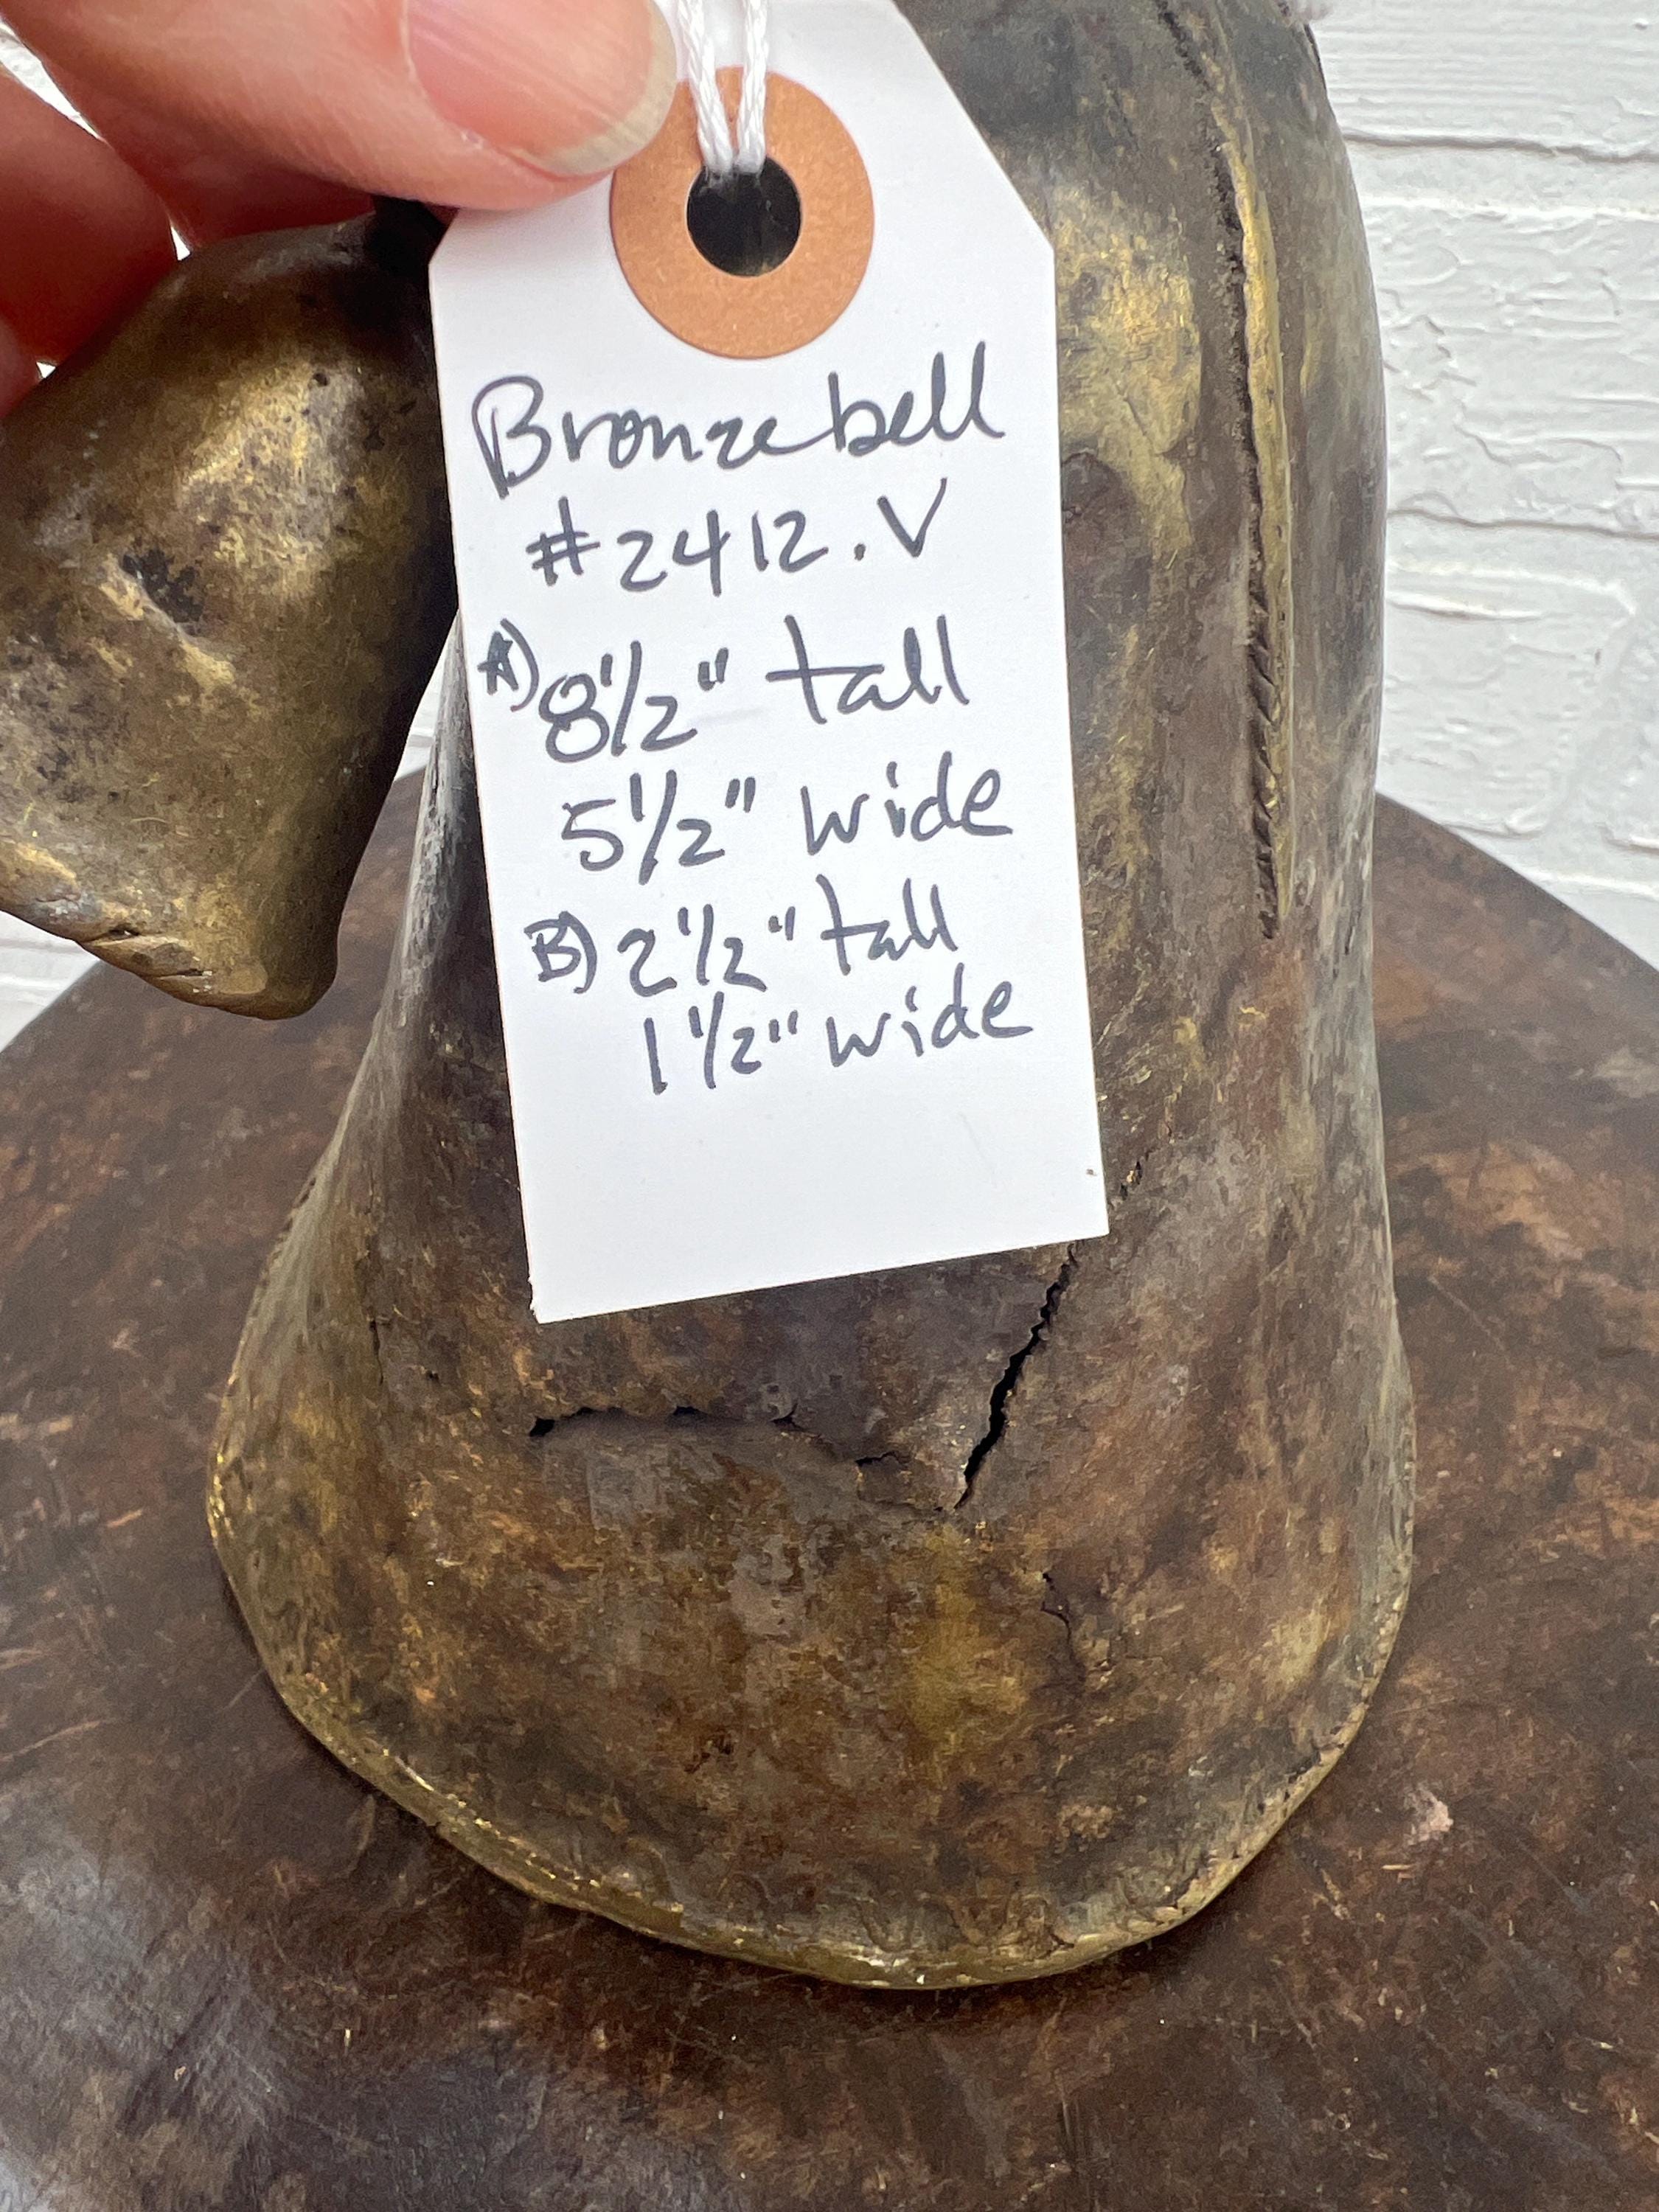 Bronze bell
#2412.V
A) 8 1/2" tall
5 1/2" wide
B) 2 1/2" tall
1 1/2" wide